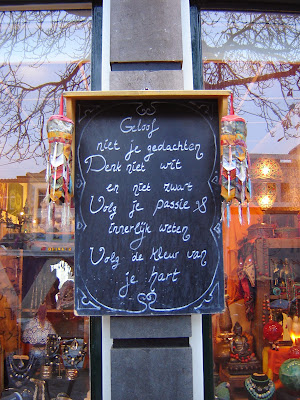 Geloof
niet je gedachten
Denk niet wit
en niet zwart
Volg je passie &
innerlijk weten
Volg de kleur van
je hart